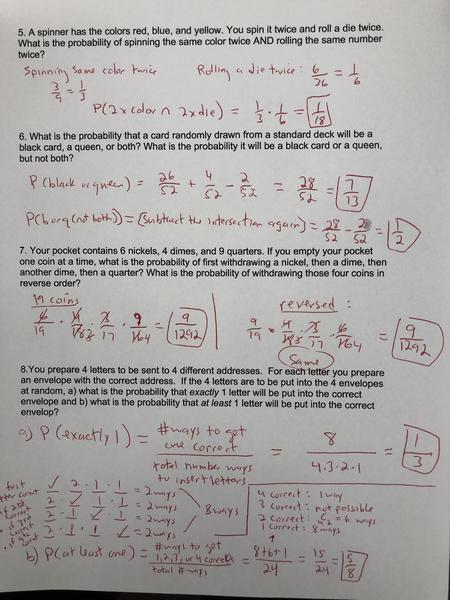 5. A spinner has the colors red, blue, and yellow. You spin it twice and roll a die twice.
What is the probability of spinning the same color twice AND rolling the same number
twice?
Spinning same color twice Rolling a die twice: 6/36 = 1/6
3/9 = 1/3
P(2xcolor ∩ 2xdie) = 1/3 · 1/6 = 1/18
6. What is the probability that a card randomly drawn from a standard deck will be a
black card, a queen, or both? What is the probability it will be a black card or a queen,
but not both?
P(black or queen) = 26/52 + 4/52 - 2/52 = 28/52 = 7/13
P(b or q (not both)) = (subtract the intersection again) = 28/52 - 2/52 = 1/2
7. Your pocket contains 6 nickels, 4 dimes, and 9 quarters. If you empty your pocket
one coin at a time, what is the probability of first withdrawing a nickel, then a dime, then
another dime, then a quarter? What is the probability of withdrawing those four coins in
reverse order?
19 coins reversed:
6/19 · 4/18 · 3/17 · 9/16 = 9/1292 9/19 · 4/18 · 3/17 · 6/16 = 9/1292
Same
8.You prepare 4 letters to be sent to 4 different addresses. For each letter you prepare
an envelope with the correct address. If the 4 letters are to be put into the 4 envelopes
at random, a) what is the probability that exactly 1 letter will be put into the correct
envelope and b) what is the probability that at least 1 letter will be put into the correct
envelop?
a) P(exactly 1) = #ways to get one correct / total number ways to insert letters = 8 / 4·3·2·1 = 1/3
first
✓ 2 · 1 · 1 = 2 ways
if 2nd correct 2 ✓ 1 · 1 = 2 ways
if 3rd correct 2 · 1 ✓ 1 = 2 ways
if 4th correct 2 · 1 · 1 ✓ = 2 ways
8 ways
4 correct: 1 way
3 correct: not possible
2 correct: = 6 ways
1 correct: 8 ways
b) P(at least one) = #ways to get 1, 2, 3, or 4 correct / total # ways = 8+6+1/24 = 15/24 = 5/8